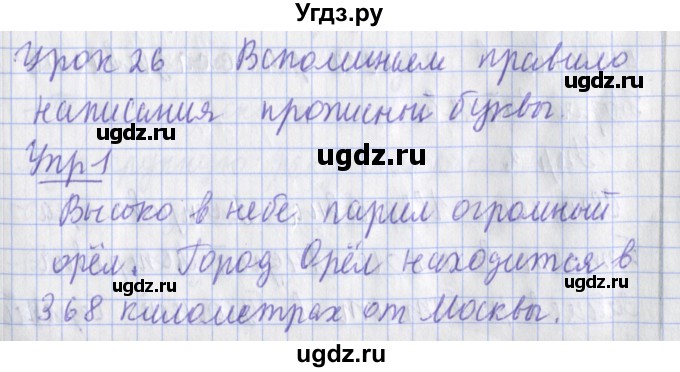 Угдз.ру
Урок 26 Вспоминаем правило
написания прописной буквы.
ugdz.ru ugdz.ru
ugdz.ru
Упр 1
ugdz.ru ugdz.ru
Высоко в небе парил огромный
орёл. Город Орёл находится в
ugdz.ru
368 километрах от Москвы.
ugdz.ru ugdz.ru
ugdz.ru